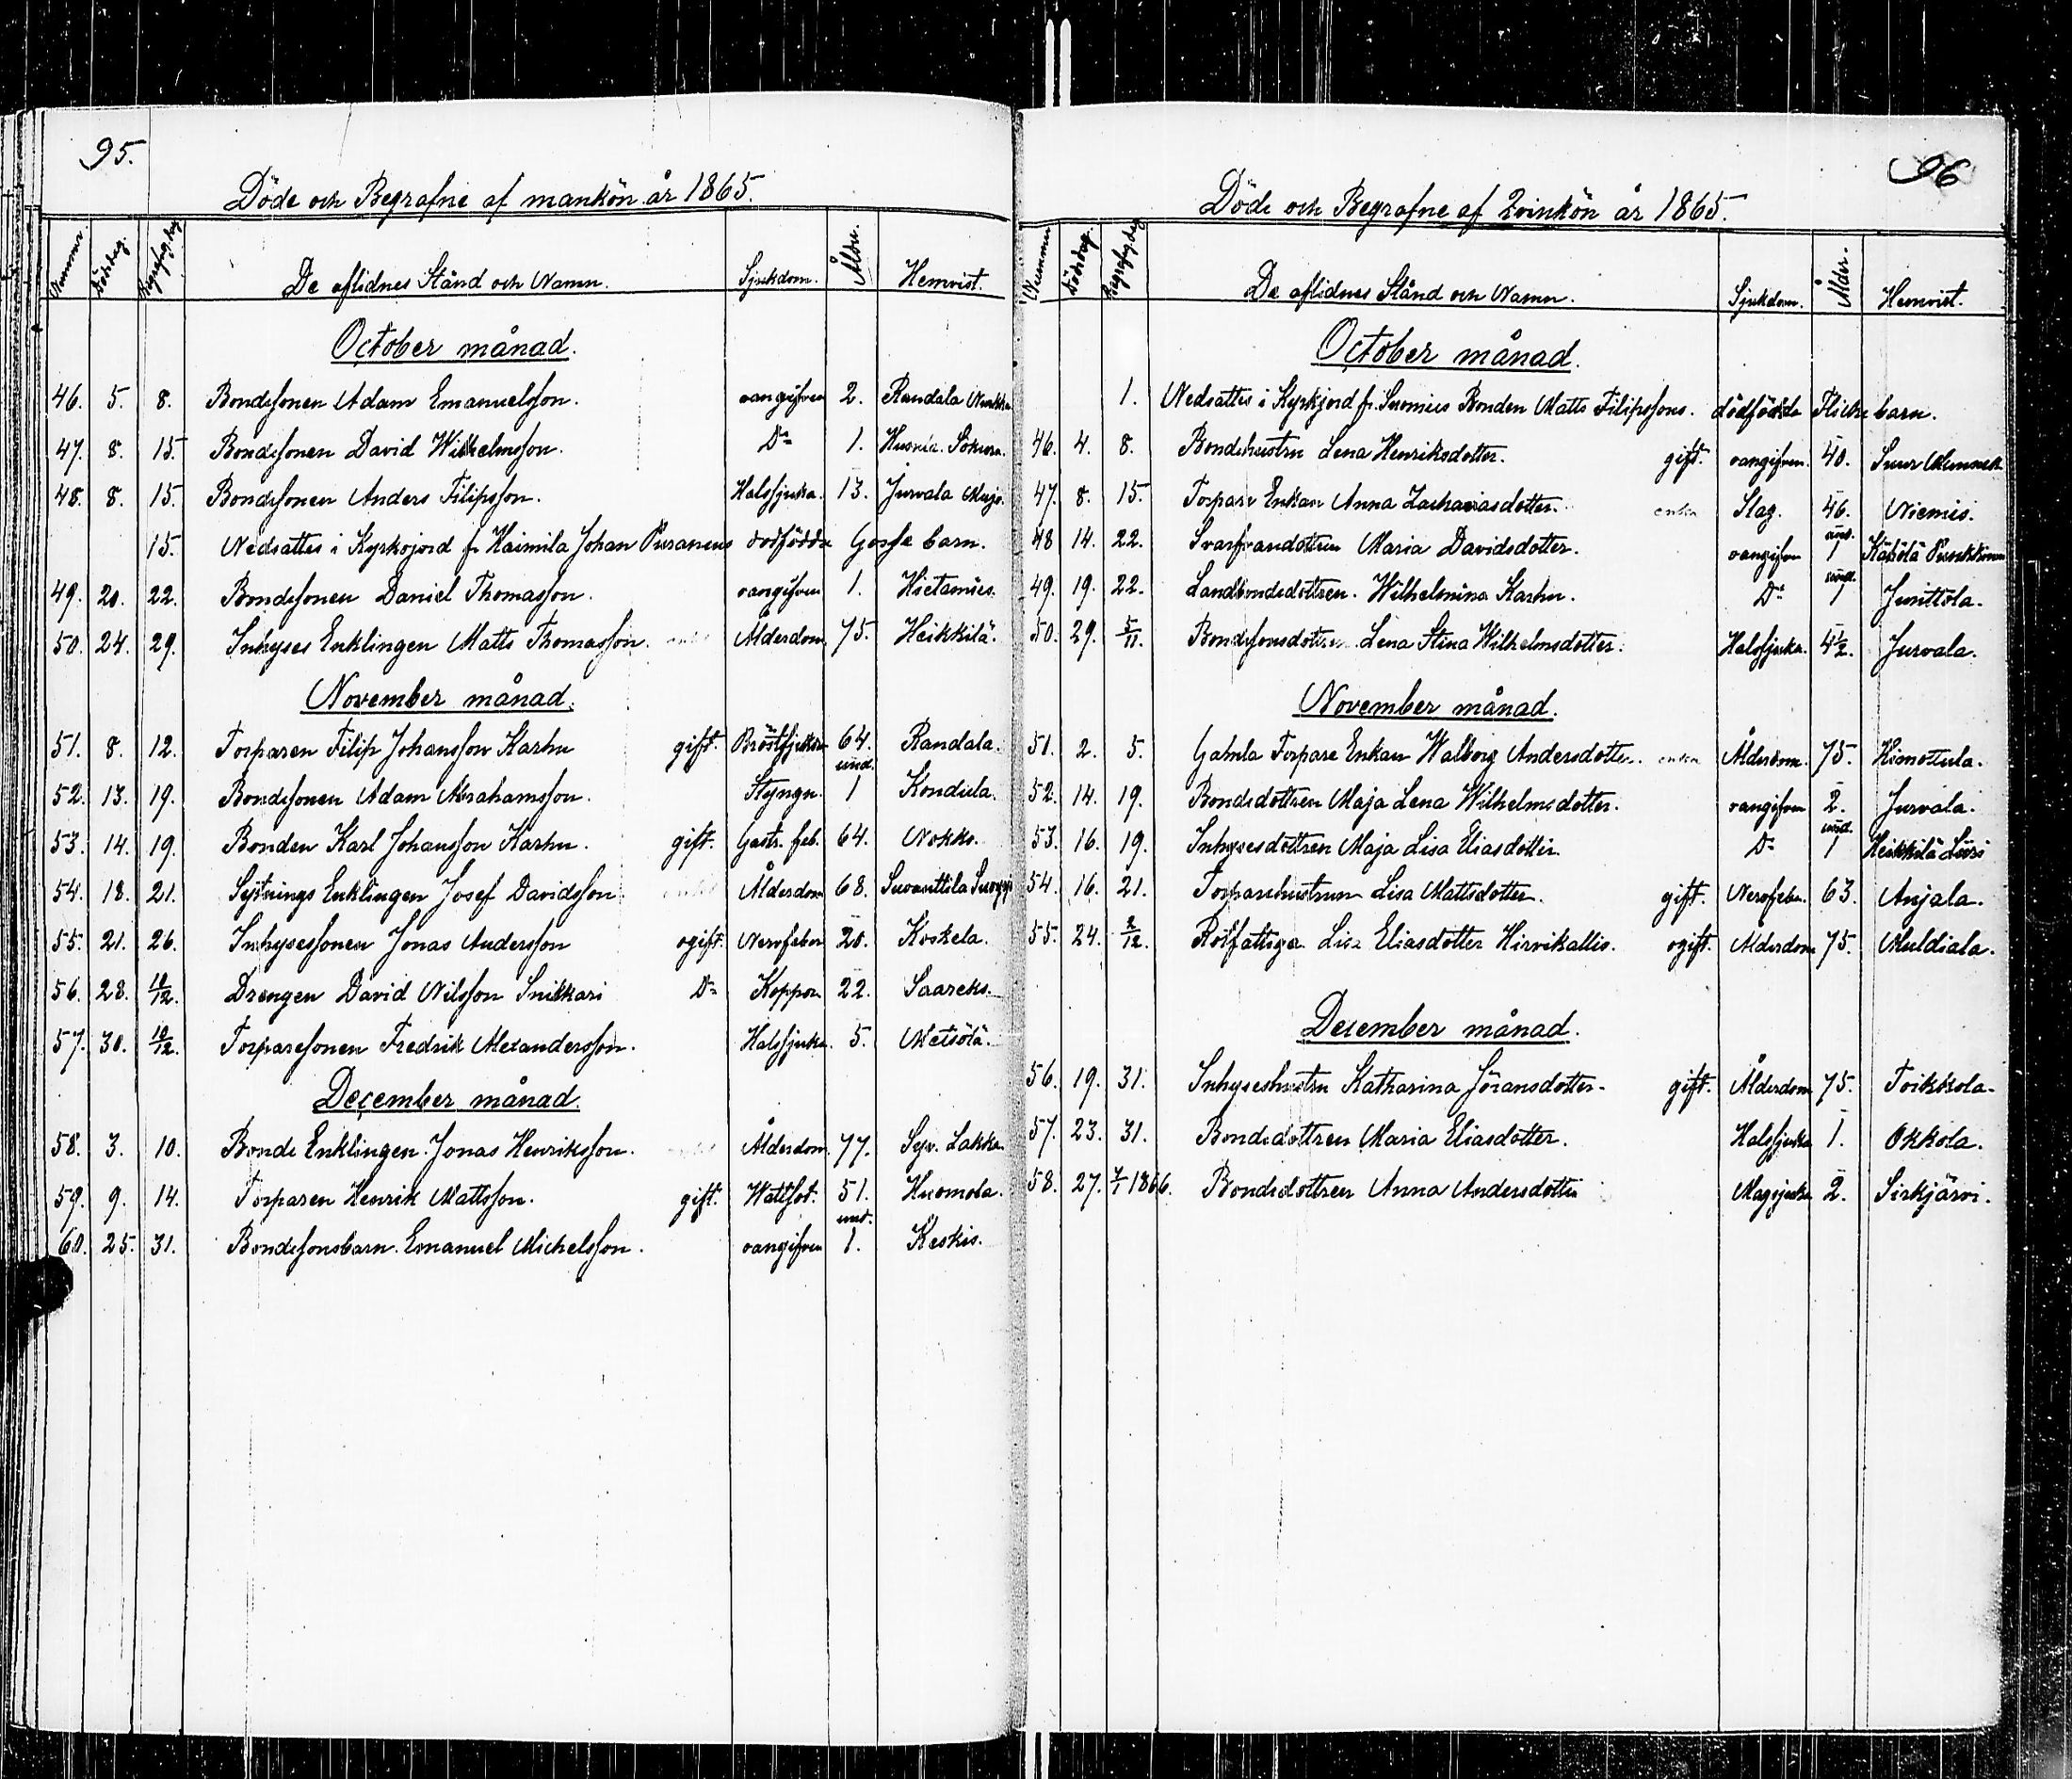 95.
Döde och Begrafne af mankön år 1865.
Nummer. Dödsdag. Begrafn.dag De aflidnes Stånd och Namn. Sjukdom. Ålder. Hemvist.
October månad.
46. 5. 8. Bondesonen Adam Emanuelsson. oangifven 2. Randala
47. 8. 15. Bondesonen David Wilhelmsson. Do 1. Sokura.
48. 8. 15. Bondesonen Anders Filipsson. Halssjuka. 13. Jurvala Maijs.
15. Nedsattes i Kyrkojord fr. Haimila Johan Pusanens dödfödda Gosse barn.
49. 20. 22. Bondesonen Daniel Thomasson. oangifven 1. Hietamies.
50. 24. 29. Inhyses Enklingen Matts Thomasson. Ålderdom 75. Heikkilä.
November månad.
51. 8. 12. Torparen Filip Johansson Karhu gift. Bröstsjukdom 64. Randala.
52. 13. 19. Bondesonen Adam Abrahamsson. Styngn. und. 1 Kondula.
53. 14. 19. Bonden Karl Johansson Karhu. gift. Gastr. feb. 64. Nokko.
54. 18. 21. Sytnings Enklingen Josef Davidsson. Ålderdom 68. Suvanttila
55. 21. 26. Inhysessonen Jonas Andersson ogift. Nervfeber 20. Koskela.
56. 28. 10/12. Drengen David Nilsson Snikkari Do Koppor 22. Saareks.
57. 30. 10/12. Torparesonen Fredrik Alexandersson. Halssjuka. 5. Metsölä.
December månad.
58. 3. 10. Bonde Enklingen Jonas Henriksson. Ålderdom. 77. Syv. Lakka.
59. 9. 14. Torparen Henrik Mattsson. gift. Wattsot. 51. Huomola.
60. 25. 31. Bondesonsbarn. Emanuel Michelsson. oangifven und. 1. Keskis.
96
Döde och Begrafne af Qvinkön år 1865.
Nummer Dödsdag. Begrafn.dag De aflidnes Stånd och Namn. Sjukdom. Ålder. Hemvist.
October månad.
1. Nedsattes i Kyrkjord fr. Suomies Bonden Matts Filipssons. dödfödda Flicke barn.
46. 4. 8. Bondehustru Lena Henriksdotter. gift. oangifven. 40. Suur
47. 8. 15. Torpare Enkan Anna Zachariasdotter. enka Slag. 46. Niemis.
48 14. 22. Svarfvaredottren Maria Davidsdotter. oangifven und. 1 Käpölä
49. 19. 22. Landbondedottren. Wilhelmina Karhu. Do und. 1 Junttola.
50. 29. 5/11. Bondesonsdottren Lena Stina Wilhelmsdotter. Halssjuka. 4½. Jurvala.
November månad.
51. 2. 5. Gamla Torpare Enkan Walborg Andersdotter. enka Ålderdom. 75. Himottula.
52. 14. 19. Bondedottren Maja Lena Wilhelmsdotter. oangifven 2. Jurvala.
53. 16. 19. Inhysesdottren Maja Lisa Eliasdotter. Do und. 1 Heikkilä
54. 16. 21. Torparehustrun Lisa Mattsdotter. gift. Nervfeber. 63. Anjala.
55. 24. 2/12. Rotfattiga Lisa Eliasdotter Hirvikallio. ogift. Ålderdom 75. Muldiala.
December månad.
56. 19. 31. Inhyseshustru Katharina Jöransdotter. gift. Ålderdom 75. Toikkola.
57. 23. 31. Bondedottren Maria Eliasdotter. Halssjuka 1. Okkola.
58. 27. 7/1 1866. Bondedottren Anna Andersdotter Magsjuka 2. Sirkjärvi.